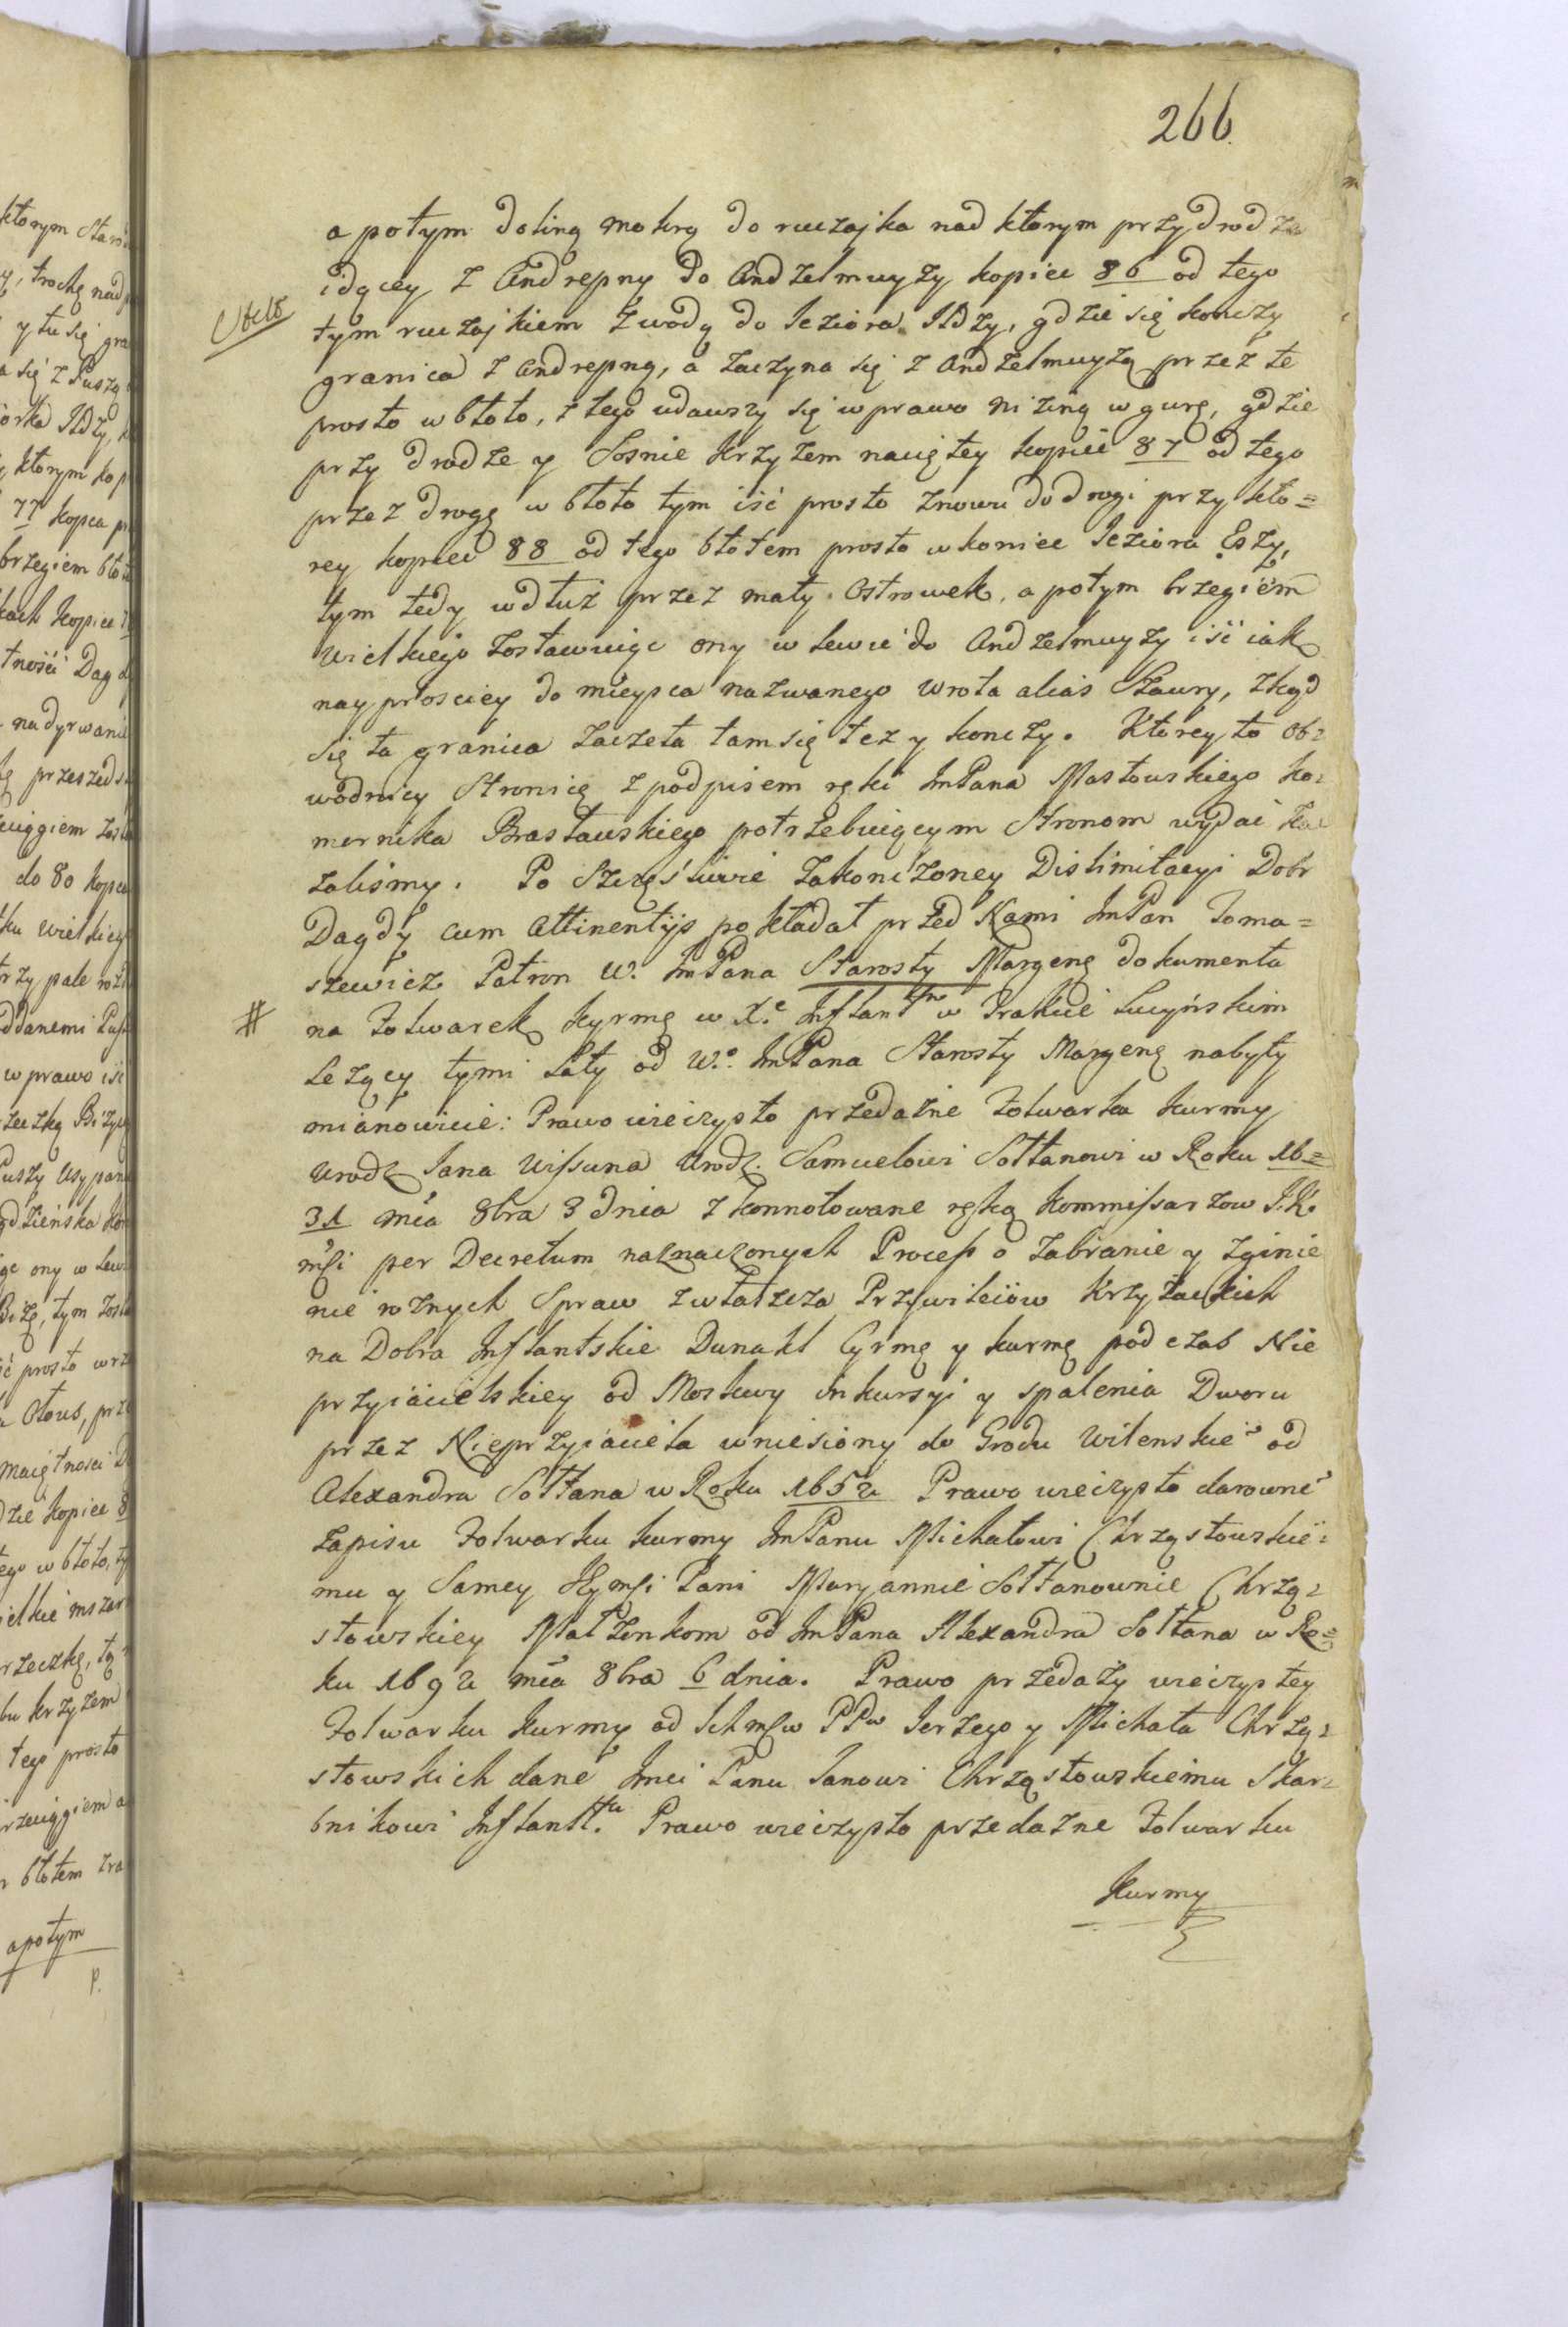 266
a potym doliną mokrą do ruczajka nad ktorym przy drodze
idącey z Andrepny do Andzelmuyzy kopiec 86 od tego
tym ruczajkiem z wodą do Ieziora Ildzy, gdzie się konczy
granica z Andrepną, a zaczyna się z Andzelmuyzą przez te
prosto w błoto, z tego udawszy się w prawo niziną w gurę, gdzie
przy drodze y Sosnie krzyżem naciętey kopiec 87 od tego
przez drogę w błoto tym iść prosto znowu do drogi przy kto=
rey kopiec 88 od tego błotem prosto w koniec Ieziora Eszy,
tym tedy wdłuż przez mały Ostrowek, a potym brzegiem
wielkiego zostawuiąc ony w lewie do Andzelmuyzy iść iak
nayprosciey do mieysca nazwanego wrota alias Staury, zkąd
się ta granica zaczeła tam się tez y konczy. Ktorey to ob=
wodnicy Stronicę z podpisem ręki ImPana Masłowskiego ko=
mornika Brasławskiego potrzebuiącym Stronom wydać ka
zaliśmy. Po Szczęśliwie zakończoney Dislimitacyi Dobr
Dagdy cum Attinentijs pokładał przed Nami ImPan Toma=
szewicz Patron W. ImPana Starosty Margeng dokumenta
# na Folwarek Kyrmę w X.e Inflantm w Trakcie Lucyńskim
Lezący tymi Laty od W.o ImPana Starosty Margeng nabyty
mianowicie: Prawo wieczysto przedażne Folwarka Kurmy
Urodz Iana Wissuna Urodz. Samuelowi Sołtanowi w Roku 16=
31 mca 8bra 3 dnia z konnotowane ręką Kommissarzow J.K.
msci per Decretum naznaczonych Process o zabranie y zginie
nie rożnych Spraw zwłaszcza Przywileiow Krzyżackich
na Dobra Inflantskie Dunakl Cyrmę y Kurmę pod czas Nie
przyiacielskiey od Moskwy Inkursyi y spalenia Dworu
przez Nieprzyiaciela wniesiony do Grodu Wilenskieo od
Alexandra Sołtana w Roku 1652 Prawo wieczysto darowne
Zapisu Folwarku Kurmy ImPanu Michałowi Chrząstowskie=
mu y Samey Jeymsi Pani Maryannie Sołtanownie Chrzą=
stowskiey Małzonkom od ImPana Alexandra Sołtana w Ro=
ku 1692 mca 8bra 6 dnia. Prawo przedaży wieczystey
Folwarku Kurmy od Ichmsw PPw Ierzego y Michała Chrzą=
stowskich dane Imci Panu Ianowi Chrząstowskiemu Skar=
bnikowi Inflantt.u Prawo wieczysto przedażne Folwarku
Kurmy